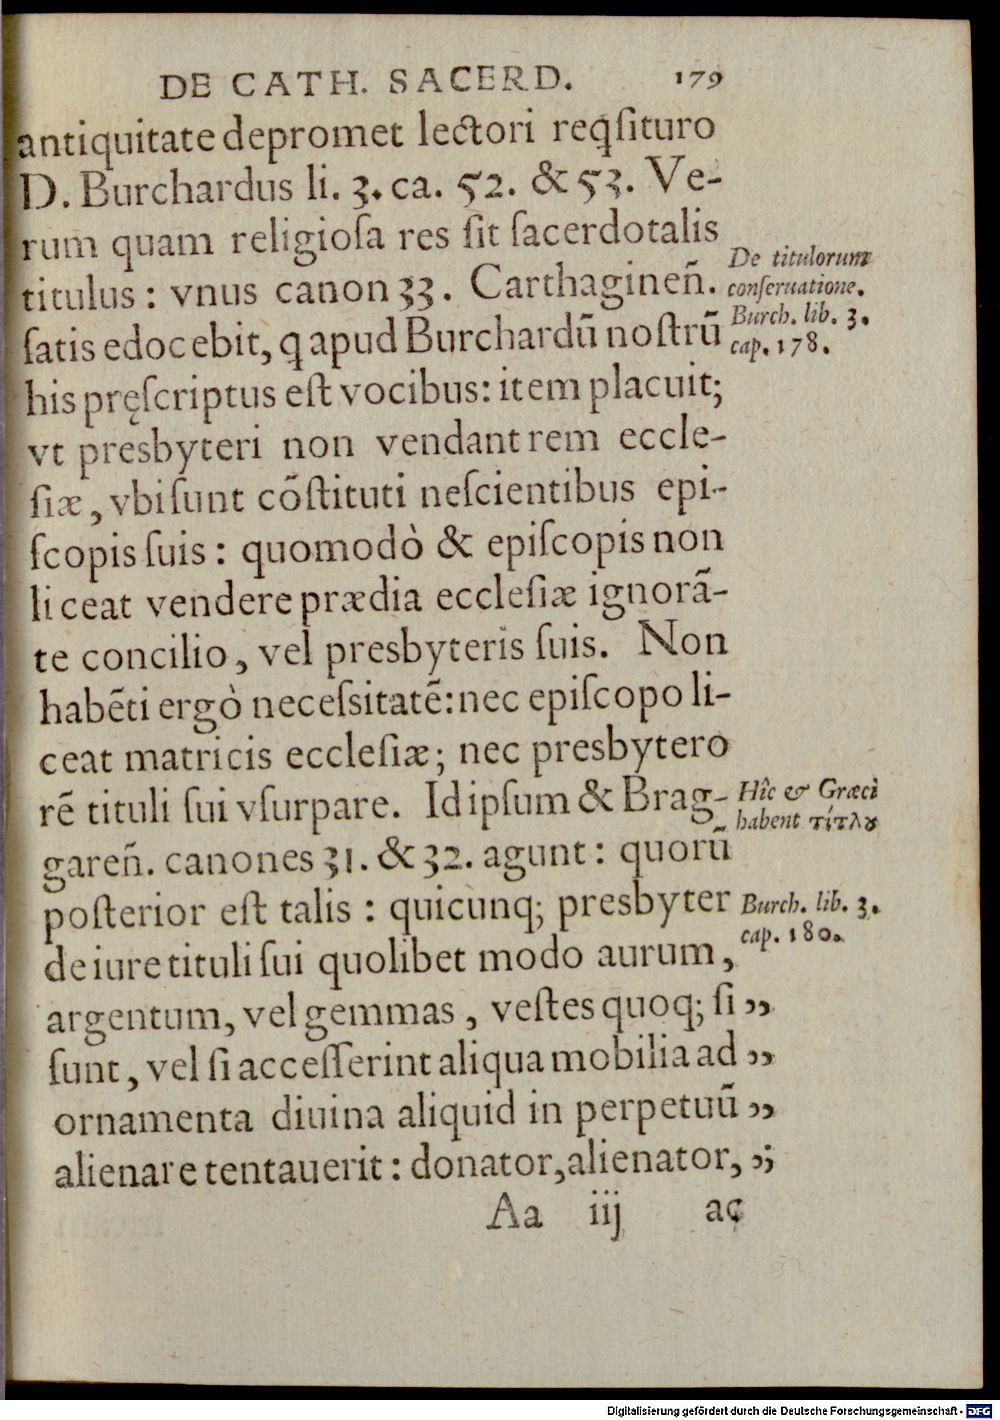 DE CATH. SACERD. 179
antiquitate depromet lectori reqſituro
D. Burchardus li. 3. ca. 52. & 53. Ve-
rum quam religioſa res ſit ſacerdotalis
titulus: vnus canon 33. Carthagineñ.
ſatis edocebit, q apud Burchardũ noſtrũ
his pręſcriptus eſt vocibus: item placuit;
vt presbyteri non vendant rem eccle-
ſiæ, vbi ſunt cõſtituti neſcientibus epi-
ſcopis ſuis: quomodò & epiſcopis non
liceat vendere prædia eccleſiæ ignorã-
te concilio, vel presbyteris ſuis. Non
habẽti ergò neceſsitatẽ: nec epiſcopo li-
ceat matricis eccleſiæ; nec presbytero
rẽ tituli ſui vſurpare. Id ipſum & Brag-
gareñ. canones 31. & 32. agunt: quorũ
poſterior eſt talis: quicunq; presbyter
de iure tituli ſui quolibet modo aurum,
argentum, vel gemmas, veſtes quoq; ſi „
ſunt, vel ſi acceſſerint aliqua mobilia ad „
ornamenta diuina aliquid in perpetuũ „
alienare tentauerit: donator, alienator, „
Aa iij ac
De titulorum
conſeruatione.
Burch. lib. 3.
cap. 178.
Hîc & Græci
habent τίτλȣ
Burch. lib. 3.
cap. 180.
Digitalisierung gefördert durch die Deutsche Forschungsgemeinschaft - DFG